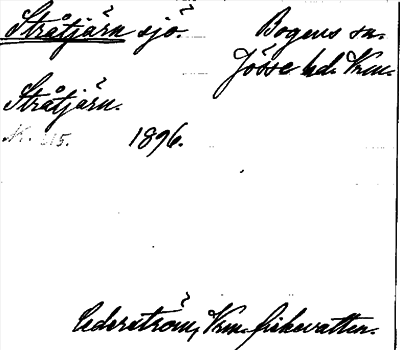 Stråtjärn sjö. Bogens sn.
Jösse hd. Vrm.
Stråtjärn.
1896.
Cederström, Vrm. fiskevatten.